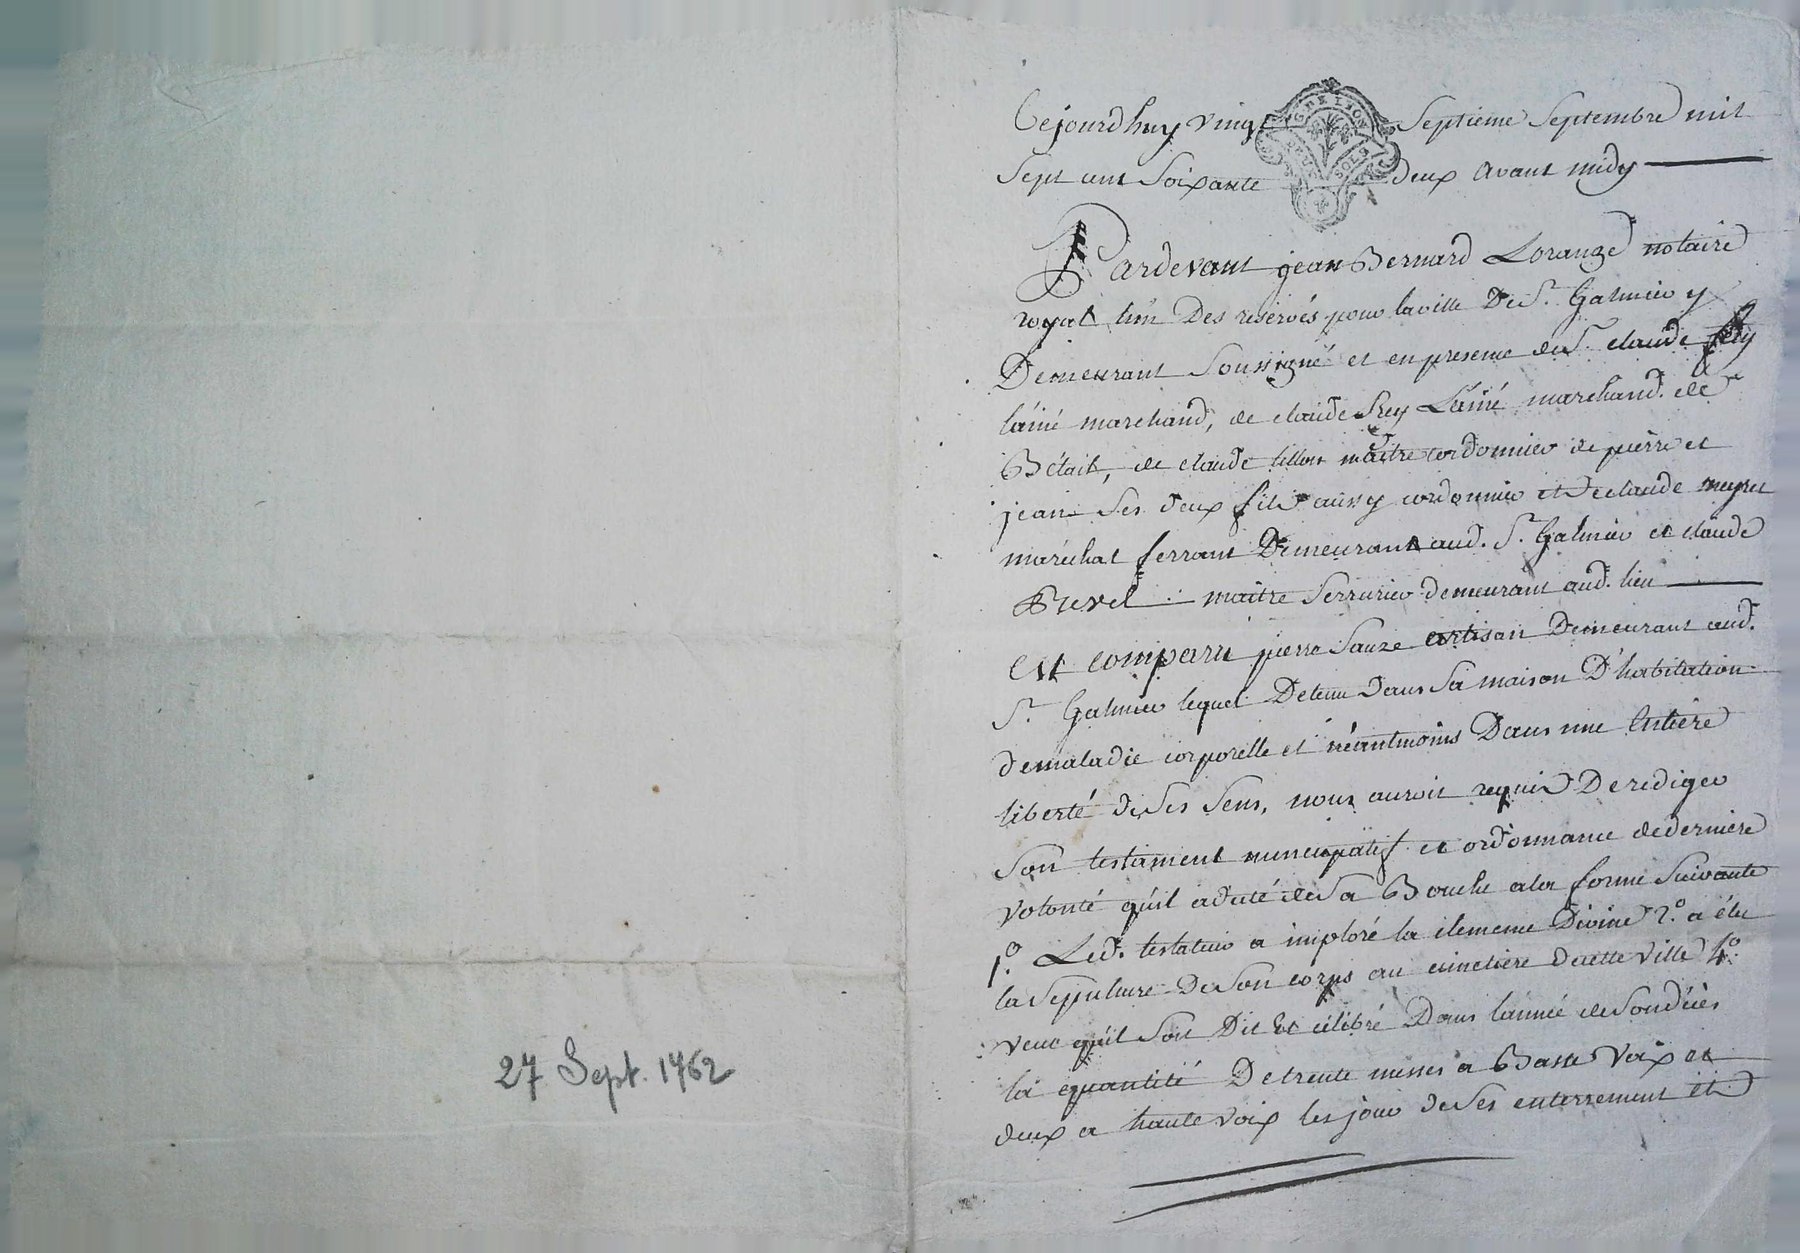 27 Sept. 1762
Cejourdhuy vingt Septieme Septembre mil
G. DE LYON
DEUX SOLS
Sept cent Soixante deux avant midy
Pardevant jean Bernard Lorange notaire
royal l'un Des reservés pour la ville De St. Galmier y
Demeurant Soussigné et en presence de Sr. claude
lainé marchand, de claude Rey Lainé marchand. de
Bétail, de claude maitre cordonnier de pierre et
jean Ses deux fils aussy cordonnier et De claude meyret
maréchal ferrant Demeurant aud. St. Galmier et claude
Brevet maitre Serrurier demeurant aud. lieu
Est comparu pierre Sauze artisan Demeurant aud.
St. Galmier lequel Detenu dans Sa maison D'habitation
de maladie corporelle et néantmoins Dans une Entiere
liberté de Ses Sens, nous auroit requis De rediger
Son testament nuncupatif et ordonnance de derniere
volonté qu'il a dicté de Sa Bouche a la forme Suivante
1.° Led. testateur a imploré la clemence Divine 2.° a élu
la Sepulture De Son corps au cimetiere de cette ville 4.°
veut qu'il Soit Dit Et célébré Dans l'année de Son décès
la quantité De trente messes a Basse voix et
deux a haute voix les jour de Ses enterrement et